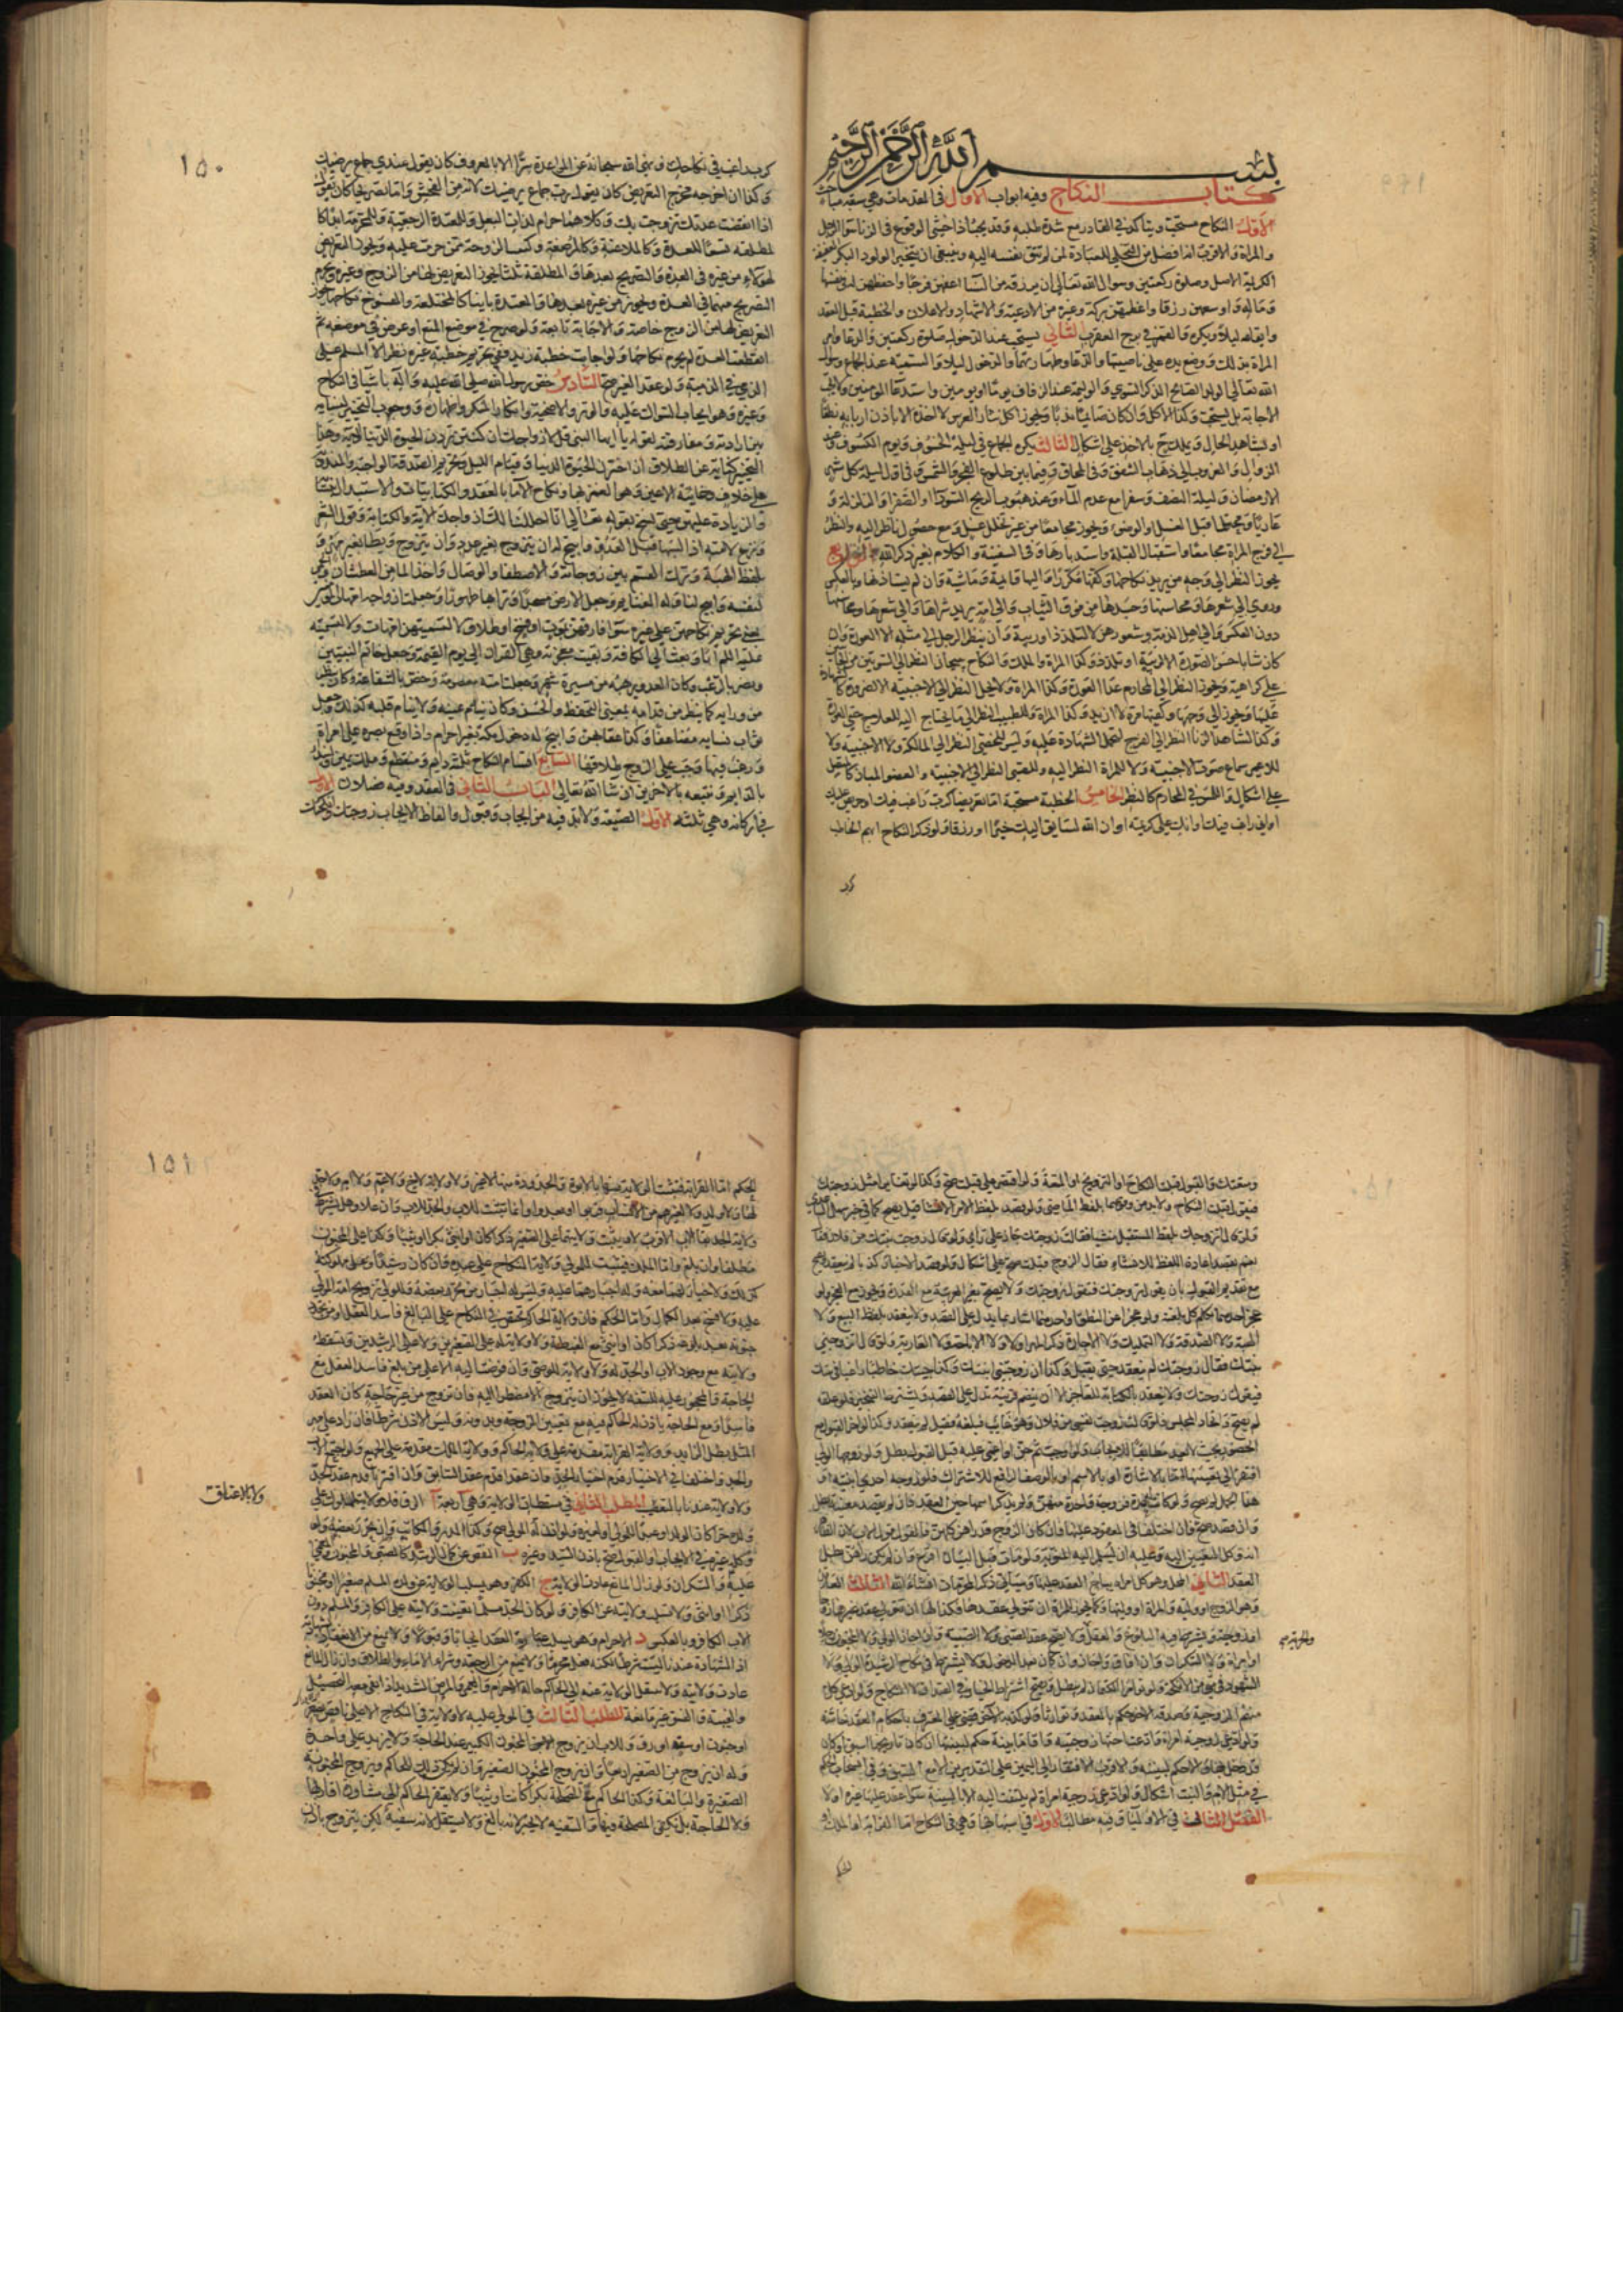 بسم الله الرحمن الرحيم
كتاب النكاح وفيه ابواب الاول في المقدمات وهي سبعة مباحث
الاول النكاح مستحب ويتاكد في القادر مع شدة طلبه وقد يجب اذا خشي الوقوع في الزنا سواء الرجل
والمراة والاقرب انه افضل من التخلي للعبادة لمن لم تتق نفسه اليه وينبغي ان يتخير الولود البكر العفيفة
الكريمة الاصل وصلوة ركعتين وسوال الله تعالى ان يرزقه من النسا اعفهن فرجا واحفظهن له في نفسها
وماله واوسعهن رزقا واعظمهن بركة وغيره من الادعية والاشهاد والاعلان والخطبة قبل العقد
وايقاعه ليلا ويكره والقمر في برج العقرب الثاني يستحب عند الدخول صلوة ركعتين والدعا وامر
المراة بذلك ووضع يده على ناصيتها والدعا وطهارتهما والدخول ليلا والتسمية عند الجماع وسوال
الله تعالى الولد الصالح الذكر السوي والوليمة عند الزفاف يوما او يومين واستدعا المومنين ولا يجب
الاجابة بل يستحب وكذا الاكل وان كان صايما ندبا ويجوز اكل نثار العرس لا اخذه الا باذن اربابه نطقا
او بشاهد الحال ويملك ح بالاخذ على اشكال الثالث يكره الجماع في ليلة الخسوف ويوم الكسوف وعند
الزوال والغروب الى ذهاب الشفق وفي المحاق وفيما بين طلوع الفجر والشمس وفي اول ليلة كل شهر
الا رمضان وليلة النصف وسفرا مع عدم الماء وعند هبوب الريح السوداء والصفرا والزلزلة و
عاريا ومحتلما قبل الغسل او الوضوء ويجوز مجامعا من غير تخلل غسل ومع حضور ناظر اليه والنظر
الى فرج المراة مجامعا واستقبال القبلة واستدبارها وفي السفينة والكلام بغير ذكر الله الرابع
يجوز النظر الى وجه من يريد نكاحها وكفيها مكررا واليها قائمة وماشية وان لم يستاذنها وبالعكس
وروي الى شعرها ومحاسنها وجسدها من فوق الثياب والى امة يريد شراها والى شعرها ومحاسنها
دون العكس والى اهل الذمة وشعورهن لا لتلذذ او ريبة وان ينظر الرجل الى مثله الا العورة وان
كان شابا حسن الصورة الا لريبة او تلذذ وكذا المراة والملك والنكاح يبيحان النظر الى السوءتين من الجانبين
على كراهية ويجوز النظر الى المحارم عدا العورة وكذا المراة ولا يحل النظر الى الاجنبية الا لضرورة كالشهادة
عليها ويجوز الى وجهها وكفيها مرة لا ازيد وكذا المراة وللطبيب النظر الى ما يحتاج اليه للعلاج حتى العورة
وكذا لشاهدي الزنا النظر الى الفرج لتحمل الشهادة عليه وليس للخصي النظر الى المالكة ولا الاجنبية ولا
للاعمى سماع صوت الاجنبية ولا للمراة النظر اليه وللصبي النظر الى الاجنبية والعضو المبان كالمتصل
على اشكال واللمس في المحارم كالنظر الخامس الخطبة مستحبة اما تعريضا كرب راغب فيك او حريص عليك
او اني راغب فيك او انك علي كريمة او ان الله لسايق اليك خيرا او رزقا ولو ذكر النكاح ابهم الخاطب
كرب
١٥٠
كرب راغب في نكاحك ونهى الله سبحانه عن المواعدة سرا الا بالمعروف كان يقول عندي جماع يرضيك
وكذا ان اخرجه مخرج التعريض كان يقول رب جماع يرضيك لانه من الفحش واما تصريحا كان يقول
اذا انقضت عدتك تزوجت بك وكلاهما حرام لذات البعل وللمعتدة الرجعية وللمحرمة ابدا كا
لمطلقة تسعا للعدة وكالملاعنة وكالمرضعة وكبنت الزوجة ممن حرمت عليه ويجوز التعريض
لهولاء من غيره في العدة والتصريح بعدها والمطلقة ثلثا يجوز التعريض لها من الزوج وغيره ويحرم
التصريح منهما في العدة ويجوز من غيره بعدها والمعتدة باينا كالمختلعة والمفسوخ نكاحها يجوز
التعريض لها من الزوج خاصة والاجابة تابعة ولو صرح في موضع المنع او عرض في موضعه ثم
انقضت العدة لم يحرم نكاحها ولو اجابت خطبة زيد ففي تحريم خطبة غيره نظر الا المسلم على
الذمي في الذمية ولو عقد الغير صح السادس خص رسول الله صلى الله عليه واله باشيا في النكاح
وغيره وهو ايجاب السواك عليه والوتر والاضحية وانكار المنكر واظهاره ووجوب التخيير لنسايه
بين ارادته ومفارقته بقوله يا ايها النبي قل لازواجك ان كنتن تردن الحيوة الدنيا الاية وهذا
التخيير كناية عن الطلاق ان اخترن الحيوة الدنيا وقيام الليل وتحريم الصدقة الواجبة والمندوبة
على خلاف وخاينة الاعين وهو الغمز بها ونكاح الاما بالعقد والكتابيات والاستبدال بنسائه
والزيادة عليهن حتى نسخ بقوله تعالى انا احللنا لك ازواجك الاية والكتابة وقول الشعر
ونزع لامته اذا لبسها قبل لقاء العدو وابيح له ان يتزوج بغير عدد وان يتزوج ويطا بغير مهر و
بلفظ الهبة وترك القسم بين زوجاته والاصطفا والوصال واخذ الما من العطشان والحمى
لنفسه وابيح لنا وله الغنايم وجعل الارض مسجدا وترابها طهورا وجعلت ازواجه امهات المومنين
بمعنى تحريم نكاحهن على غيره سوا فارقهن بموت او فسخ او طلاق لا لتسميتهن امهات ولا لتسميته
عليه السلم ابا وبعث الى الكافة وبقيت معجزته وهي القران الى يوم القيمة وجعل خاتم النبيين
ونصر بالرعب وكان العدو يرهبه من مسيرة شهر وجعلت امته معصومة وخص بالشفاعة وكان ينظر
من ورايه كما ينظر من قدامه بمعنى التحفظ والحس وكان تنام عينه ولا ينام قلبه كذلك وجعل
ثواب نسايه مضاعفا وكذا عقابهن وابيح له دخول مكة بغير احرام واذا وقع بصره على امراة
ورغب فيها وجب على الزوج طلاقها السابع اقسام النكاح ثلثة دايم ومنقطع وملك يمين ونبدا
بالدايم ونتبعه بالاخرين ان شا الله تعالى الباب الثاني في العقد وفيه فصلان الاول
في اركانه وهي ثلثة الاول الصيغة ولابد فيه من ايجاب وقبول والفاظ الايجاب زوجتك وانكحتك
ومتعتك والقبول قبلت النكاح او التزويج او المتعة ولو اقتصر على قبلت صح وكذا لو تغايرا مثل زوجتك
فيقول قبلت النكاح ولابد من وقوعهما بلفظ الماضي ولو قصد بلفظ الامر الانشا قيل يصح كما في خبر سهل الساعدي
ولو قال اتزوجك بلفظ المستقبل منشيا فقالت زوجتك جاز على راي ولو قال زوجت بنتك من فلان فقال
نعم بقصد اعادة اللفظ للانشاء فقال الزوج قبلت صح على اشكال ولو قصد الاخبار كذبا لم ينعقد ويصح
مع تقديم القبول بان يقول تزوجتك فتقول زوجتك ولا يصح بغير العربية مع القدرة ويجوز مع العجز ولو
عجز احدهما تكلم كل بلغته ولو عجزا عن النطق او احدهما اشار بما يدل على القصد ولا ينعقد بلفظ البيع ولا
الهبة ولا الصدقة ولا التمليك ولا الاجارة ذكر المهر او لا ولا الاباحة ولا العارية ولو قال اتزوجني
بنتك فقال زوجتك لم ينعقد حتى يقبل وكذا ان زوجتني ابنتك وكذا جيتك خاطبا راغبا في بنتك
فيقول زوجتك ولا ينعقد بالكتابة للعاجز الا ان يضم قرينة تدل على القصد ويشترط التنجيز فلو علقه
لم يصح واتحاد المجلس فلو قالت زوجت نفسي من فلان وهو غايب فبلغه فقبل لم ينعقد وكذا لو اخر القبول مع
الحضور بحيث لا يعد مطابقا للايجاب ولو اوجب ثم جن او اغمي عليه قبل القبول بطل ولو زوجها الولي
افتقر الى تعيينها اما بالاشارة او بالاسم او بالوصف الرافع للاشتراك فلو زوجه احدى ابنتيه او
هذا الحمل لم يصح ولو كان له عدة فزوجه واحدة منهن ولم يذكر اسمها حين العقد فان لم يقصد معينة بطل
وان قصد صح فان اختلفا في المعقود عليها فان كان الزوج قد راهن كلهن فالقول قول الاب لان الظاهر
انه وكل التعيين اليه وعليه ان يسلم اليه المنوية ولو مات قبل البيان اقرع وان لم يكن راهن بطل
العقد الثاني المحل وهو كل امراة يباح العقد عليها وسياتي ذكر المحرمات انشاء الله الثالث العاقد
وهو الزوج او وليه والمراة او وليها وكما يجوز للمراة ان تتولى عقدها فكذا لها ان تتولى عقد غيرها زوجا
او زوجة ويشترط فيه البلوغ والعقل والحرية فلا يصح عقد الصبي ولا الصبية وان اجاز الولي ولا المجنون رجلا
او امراة ولا السكران وان افاق واجاز وان كان بعد الدخول ولا يشترط في نكاح الرشيدة الولي ولا
الشهود في شي من الانكحة ولو تامرا الكتمان لم يبطل ويصح اشتراط الخيار في الصداق لا النكاح ولو ادعى كل
منهم الزوجية وصدقه الاخر حكم بالعقد وتوارثا ولو كذبه الاخر قضي على المعترف باحكام العقد خاصة
ولو ادعى زوجية امراة وادعت اختها زوجيته واقاما بينة حكم لبينتها ان كان تاريخها اسبق او كان
قد دخل بها والا حكم لبينته والاقرب الافتقار الى اليمين على التقديرين الا مع السبق وفي انسحاب الحكم
في مثل الام والبنت اشكال ولو ادعى زوجية امراة لم يلتفت اليه الا بالبينة سوا عقد عليها غيره او لا
الفصل الثاني في الاوليا وفيه مطالب الاول في اسبابها وهي في النكاح اما القرابة او الملك او
الحكم
١٥١
الحكم اما القرابة فتثبت الولاية منها بالابوة والجدودة منها لا غير ولا ولاية لاخ ولا عم ولا ام ولا جد
لها ولا ولد ولا لغيرهم من الانساب قربوا او بعدوا وانما تثبت للاب والجد للاب وان علا وهل يشترط في
ولاية الجد بقا الاب الاقرب لا ويثبت ولايتهما على الصغير ذكرا كان او انثى بكرا او ثيبا وكذا على المجنون
مطلقا وان بلغ واما الملك فيثبت للمولى ولاية النكاح على عبده وان كان رشيدا وعلى مملوكته
كذلك ولا خيار لهما معه وله اجبارهما عليه وليس له اجبار من تحرر بعضه وللولي تزويج امة المولى
عليه ولا فسخ بعد الكمال واما الحكم فان ولاية الحاكم تختص في النكاح على البالغ فاسد العقل او من تجدد
جنونه بعد بلوغه ذكرا كان او انثى مع الغبطة ولا ولاية له على الصغيرين ولا على الرشيدين وتسقط
ولايته مع وجود الاب او الجد له ولا ولاية للوصي وان فوضت اليه الا على من بلغ فاسد العقل مع
الحاجة والمحجور عليه للسفه لا يجوز ان يتزوج الا مضطرا اليه فان تزوج من غير حاجة كان العقد
فاسدا ومع الحاجة ياذن له الحاكم فيه مع تعيين الزوجة وبدونه وليس الاذن شرطا فان زاد على مهر
المثل بطل الزايد وولاية القرابة مقدمة على ولاية الحاكم وولاية الملك مقدمة على الجميع ولو اجتمع الاب
والجد واختلفا في الاختيار قدم اختيار الجد وان عقدا قدم عقد السابق وان اقترنا قدم عقد الجد
ولا ولاية عندنا بالتعصيب المطلب الثاني في مسقطات الولاية وهي اربعة ا الرق فلا ولاية لمملوك على
ولده حرا كان الولد او عبدا للمولى او لغيره ولو اذن له المولى صح وكذا المدبر والمكاتب وان تحرر بعضه ولو
وكله غيره في الايجاب والقبول صح باذن السيد وغيره ب النقص عن كمال الرشد كالصبي والمجنون والمغمى
عليه والسكران ولو زال المانع عادت الولاية ج الكفر وهو يسلب الولاية عن ولده المسلم صغيرا او مجنونا
ذكرا او انثى ولا يسلب ولايته عن الكافر ولو كان الجد مسلما تعينت ولايته على الكافر والمسلم دون
الاب الكافر وبالعكس د الاحرام وهو يسلب عبارة العقد ايجابا وقبولا ولا يمنع من الانعقاد بشهادته
اذ الشهادة عندنا ليست شرطا لكنه فعل محرما ولا يمنع من الرجعة وشراء الاماء والطلاق وان زال المانع
عادت ولايته ولا تنتقل الولاية عنه الى الحاكم حالة الاحرام والعمى والمرض الشديد اذا بقي معه التحصيل
والغيبة والفسق غير مانعة المطلب الثالث في المولى عليه لا ولاية في النكاح الا على ناقص بصغر
او جنون او سفه او رق وللاب ان يزوج الابن المجنون الكبير عند الحاجة ولا يزيد على واحدة
وله ان يزوج من الصغير اربعا وان يزوج المجنون الصغير وان لم يكن ذلك للحاكم ويزوج المجنونة
الصغيرة والبالغة وكذا الحاكم مع المصلحة بكرا كانت او ثيبا ولا يفتقر الحاكم الى مشاورة اقاربها
ولا الحاجة بل تكفي المصلحة فيها والسفيه لا يجبر لانه بالغ ولا يستقل لانه سفيه لكن يتزوج باذن
ولا بالاعتاق
والحرية صح